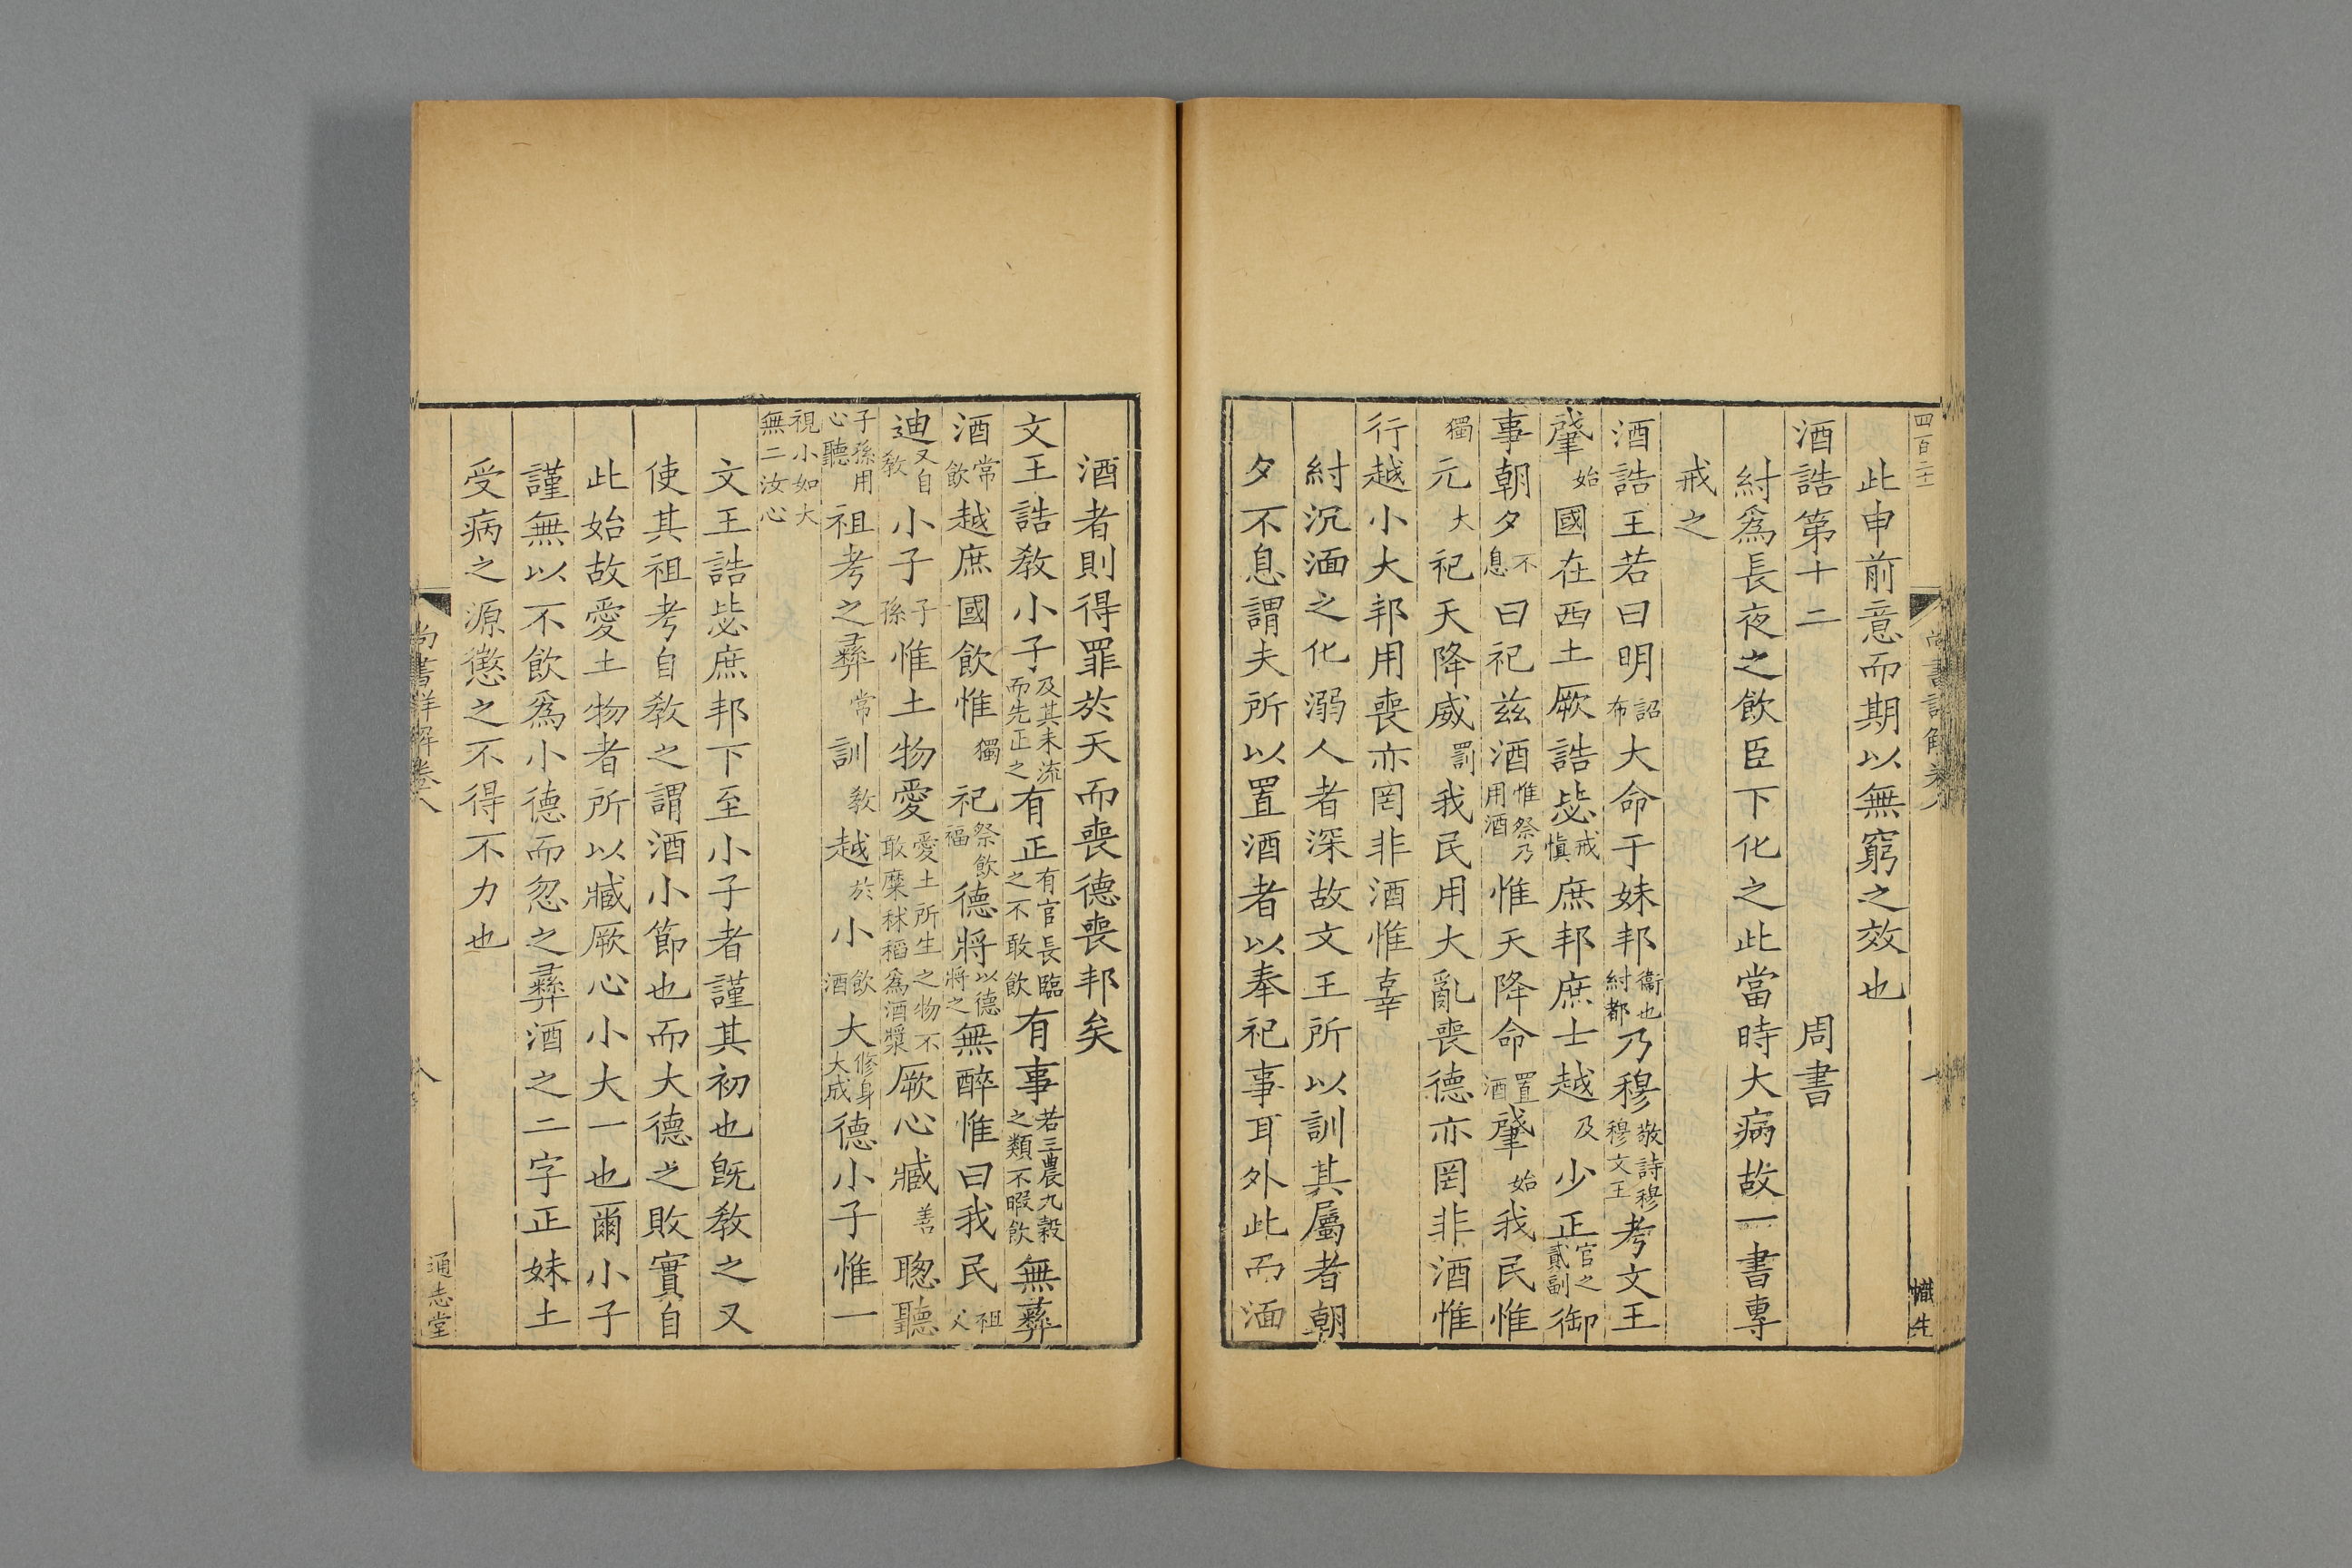 四百二十
此申前意而期以無窮之效也
酒誥第十二 周書
紂爲長夜之飲臣下化之此當時大病故一書專
戒之
酒誥王若曰明詔布大命于妹邦衞也紂都乃穆敬詩穆穆文王考文王
肇始國在西土厥誥毖戒愼庶邦庶士越及少正官之貳副御
事朝夕不息曰祀兹酒惟祭乃用酒惟天降命置酒肇始我民惟
元獨大祀天降威罰我民用大亂喪德亦罔非酒惟
行越小大邦用喪亦罔非酒惟辜
紂沉湎之化溺人者深故文王所以訓其屬者朝
夕不息謂夫所以置酒者以奉祀事耳外此而湎
酒者則得罪於天而喪德喪邦矣
文王誥敎小子及其未流而先正之有正有官長臨之不敢飲有事若三農九穀之類不暇飲無彝
酒常飲越庶國飲惟獨祀祭飲福德將以德將之無醉惟曰我民祖父
迪又自敎小子子孫惟土物愛愛土所生之物不敢糜秫稻爲酒漿厥心臧善聰聽
子孫用心聽祖考之彝常訓敎越於小飲酒大修身大成德小子惟一
視小如大無二汝心
文王誥毖庶邦下至小子者謹其初也旣敎之又
使其祖考自敎之謂酒小節也而大德之敗實自
此始故愛土物者所以臧厥心小大一也爾小子
謹無以不飲爲小德而忽之彝酒之二字正妹土
受病之源懲之不得不力也
尚書詳解卷八
通志堂